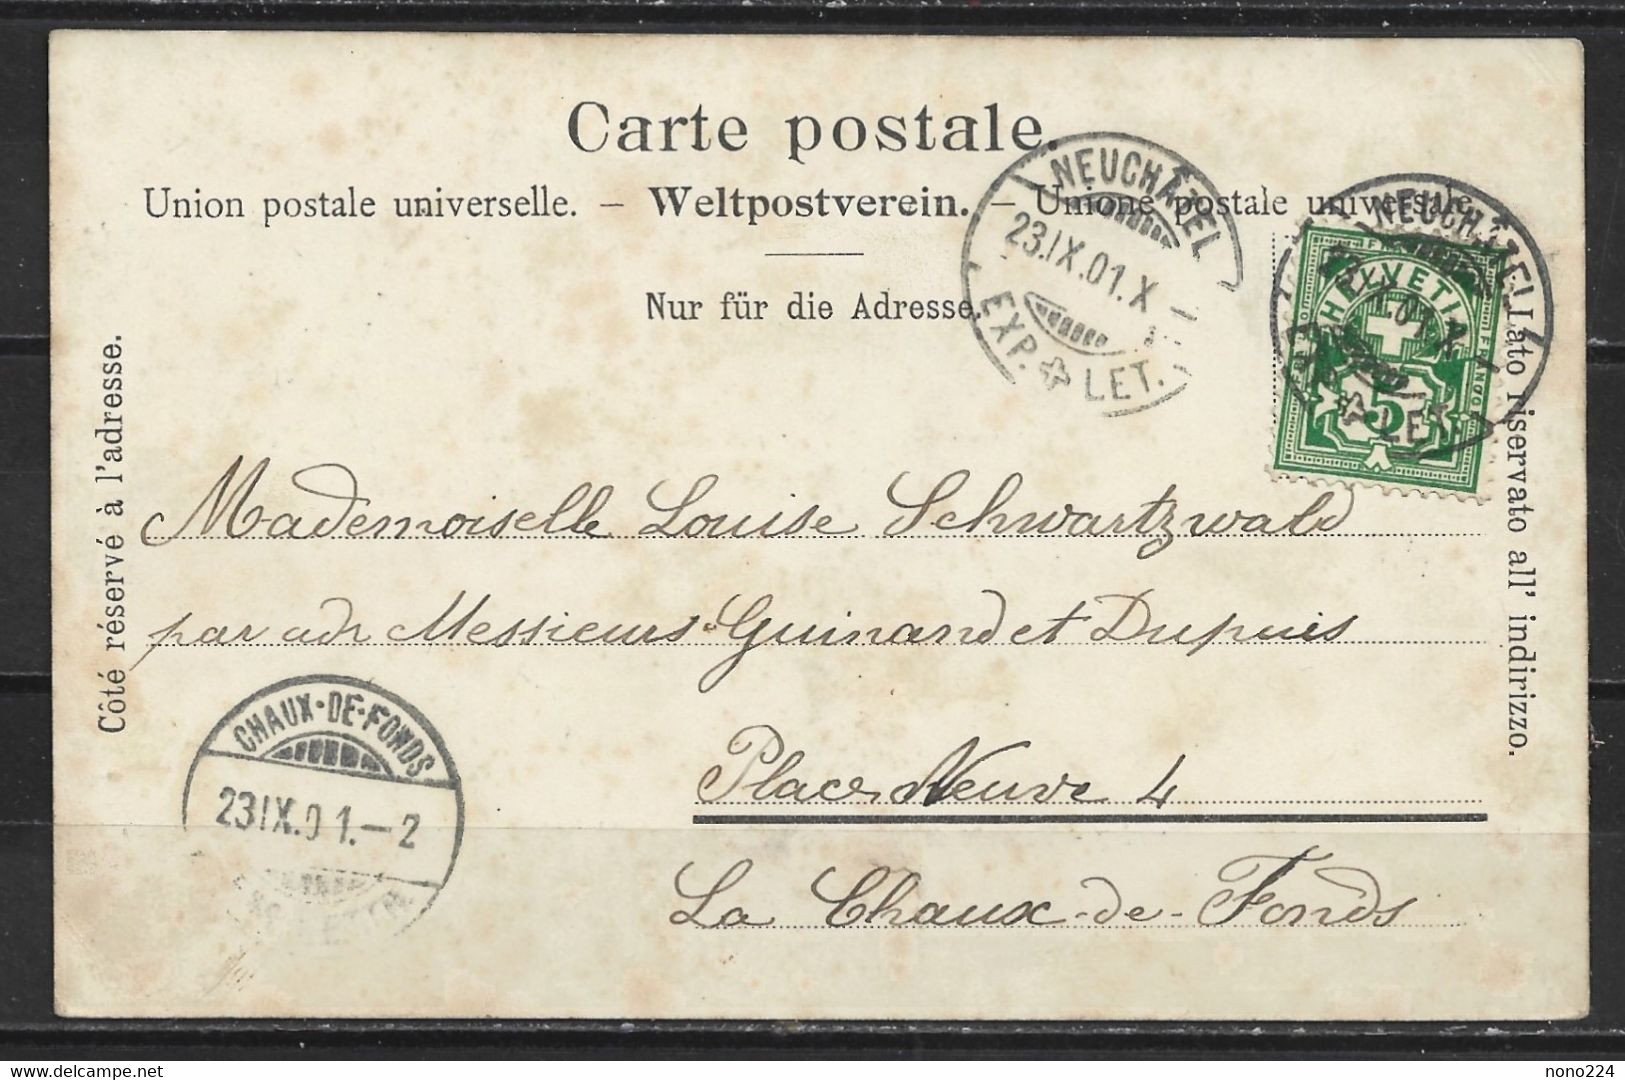 Carte postale.
Union postale universelle. – Weltpostverein. – Unione postale universale.
Nur für die Adresse.
Côté réservé à l'adresse.
Lato riservato all' indirizzo.
NEUCHÂTEL
23.IX.01.X
EXP. LET.
NEUCHÂTEL
IX.01.X
LET.
FRANCO
HELVETIA
FRANCO
5
Mademoiselle Louise Schwartzwald
par adr Messieurs Guinand et Dupuis
Place Neuve 4
La Chaux-de-Fonds
CHAUX-DE-FONDS
23IX.01.–2
www.delcampe.net
nono224